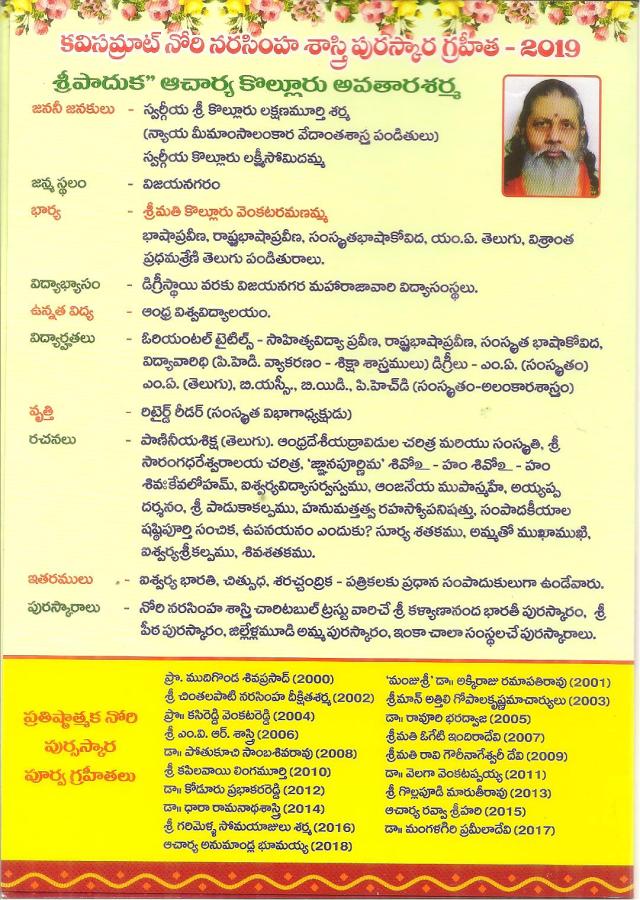 కవిసమ్రాట్ నోరి నరసింహ శాస్త్రి పురస్కార గ్రహీత - 2019
శ్రీపాదుక" ఆచార్య కొల్లూరు అవతారశర్మ
జననీ జనకులు - స్వర్గీయ శ్రీ కొల్లూరు లక్షణమూర్తి శర్మ
(న్యాయ మీమాంసాలంకార వేదాంతశాస్త్ర పండితులు)
స్వర్గీయ కొల్లూరు లక్ష్మీసోమిదమ్మ
జన్మ స్థలం - విజయనగరం
భార్య - శ్రీమతి కొల్లూరు వెంకటరమణమ్మ
భాషాప్రవీణ, రాష్ట్రభాషాప్రవీణ, సంస్కృతభాషాకోవిద, యం.ఏ. తెలుగు, విశ్రాంత
ప్రధమశ్రేణి తెలుగు పండితురాలు.
విద్యాభ్యాసం - డిగ్రీస్థాయి వరకు విజయనగర మహారాజావారి విద్యాసంస్థలు.
ఉన్నత విద్య - ఆంధ్ర విశ్వవిద్యాలయం.
విద్యార్హతలు - ఓరియంటల్ టైటిల్స్ - సాహిత్యవిద్యా ప్రవీణ, రాష్ట్రభాషాప్రవీణ, సంస్కృత భాషాకోవిద,
విద్యావారిధి (పి.హెడి. వ్యాకరణం - శిక్షా శాస్త్రములు) డిగ్రీలు - ఎం.ఏ. (సంస్కృతం)
ఎం.ఏ. (తెలుగు), బి.యస్సీ., బి.యిడి., పి.హెచ్‌డి (సంస్కృతం-అలంకారశాస్త్రం)
వృత్తి - రిటైర్డ్ రీడర్ (సంస్కృత విభాగాధ్యక్షుడు)
రచనలు - పాణినీయశిక్ష (తెలుగు). ఆంధ్రదేశీయద్రావిడుల చరిత్ర మరియు సంస్కృతి, శ్రీ
సారంగధరేశ్వరాలయ చరిత్ర, 'జ్ఞానపూర్ణిమ' శివోఽ - హం శివోఽ - హం
శివఃకేవలోహమ్, ఐశ్వర్యవిద్యాసర్వస్వము, ఆంజనేయ ముపాస్మహే, అయ్యప్ప
దర్శనం, శ్రీ పాదుకాకల్పము, హనుమత్తత్వ రహస్యోపనిషత్తు, సంపాదకీయాల
షష్ఠిపూర్తి సంచిక, ఉపనయనం ఎందుకు? సూర్య శతకము, అమ్మతో ముఖాముఖి,
ఐశ్వర్యశ్రీకల్పము, శివశతకము.
ఇతరములు - ఐశ్వర్య భారతి, చిత్సుధ, శరచ్చంద్రిక - పత్రికలకు ప్రధాన సంపాదుకులుగా ఉండేవారు.
పురస్కారాలు - నోరి నరసింహ శాస్త్రి చారిటబుల్ ట్రస్టు వారిచే శ్రీ కళ్యాణానంద భారతీ పురస్కారం, శ్రీ
పీఠ పురస్కారం, జిల్లేళ్లమూడి అమ్మ పురస్కారం, ఇంకా చాలా సంస్థలచే పురస్కారాలు.
ప్రతిష్టాత్మక నోరి
పుర్సస్కార
పూర్వ గ్రహీతలు
ప్రొ. ముదిగొండ శివప్రసాద్ (2000)
శ్రీ చింతలపాటి నరసింహ దీక్షితశర్మ (2002)
ప్రొ॥ కసిరెడ్డి వెంకటరెడ్డి (2004)
శ్రీ ఎం.వి. ఆర్. శాస్త్రి (2006)
డా॥ పోతుకూచి సాంబశివరావు (2008)
శ్రీ కపిలవాయి లింగమూర్తి (2010)
డా॥ కోడూరు ప్రభాకరరెడ్డి (2012)
డా॥ ధారా రామనాథశాస్త్రి (2014)
శ్రీ గరిమెళ్ళ సోమయాజులు శర్మ (2016)
ఆచార్య అనుమాండ్ల భూమయ్య (2018)
'మంజుశ్రీ' డా॥ అక్కిరాజు రమాపతిరావు (2001)
శ్రీమాన్ అత్తిలి గోపాలకృష్ణమాచార్యులు (2003)
డా॥ రావూరి భరద్వాజ (2005)
శ్రీమతి ఓగేటి ఇందిరాదేవి (2007)
శ్రీమతి రావి గౌరీనాగేశ్వరీ దేవి (2009)
డా॥ వెలగా వెంకటప్పయ్య (2011)
శ్రీ గొల్లపూడి మారుతీరావు (2013)
ఆచార్య రవ్వా శ్రీహరి (2015)
డా॥ మంగళగిరి ప్రమీలాదేవి (2017)